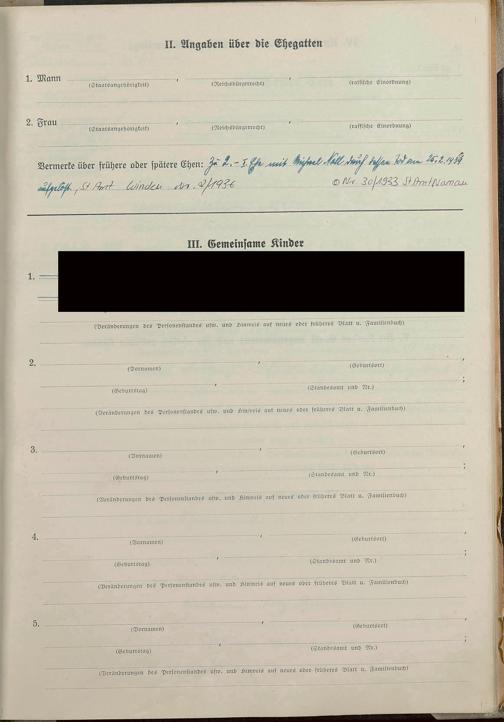 II. Angaben über die Ehegatten
1. Mann , ,
(Staatsangehörigkeit) (Reichsbürgerrecht) (rassische Einordnung)
2. Frau , ,
(Staatsangehörigkeit) (Reichsbürgerrecht) (rassische Einordnung)
Vermerke über frühere oder spätere Ehen: Zu 2. – I. Ehe mit Michael durch dessen Tod am
aufgelöst, St. Amt Winden Nr. 2/1936 Nr. 30/1933 St Amt
III. Gemeinsame Kinder
1.
(Veränderungen des Personenstandes usw. und Hinweis auf neues oder früheres Blatt u. Familienbuch)
2. , ;
(Vornamen) (Geburtsort)
(Geburtstag) (Standesamt und Nr.)
(Veränderungen des Personenstandes usw. und Hinweis auf neues oder früheres Blatt u. Familienbuch)
3. , ;
(Vornamen) (Geburtsort)
(Geburtstag) (Standesamt und Nr.)
(Veränderungen des Personenstandes usw. und Hinweis auf neues oder früheres Blatt u. Familienbuch)
4. , ;
(Vornamen) (Geburtsort)
(Geburtstag) (Standesamt und Nr.)
(Veränderungen des Personenstandes usw. und Hinweis auf neues oder früheres Blatt u. Familienbuch)
5. , ;
(Vornamen) (Geburtsort)
(Geburtstag) (Standesamt und Nr.)
(Veränderungen des Personenstandes usw. und Hinweis auf neues oder früheres Blatt u. Familienbuch)